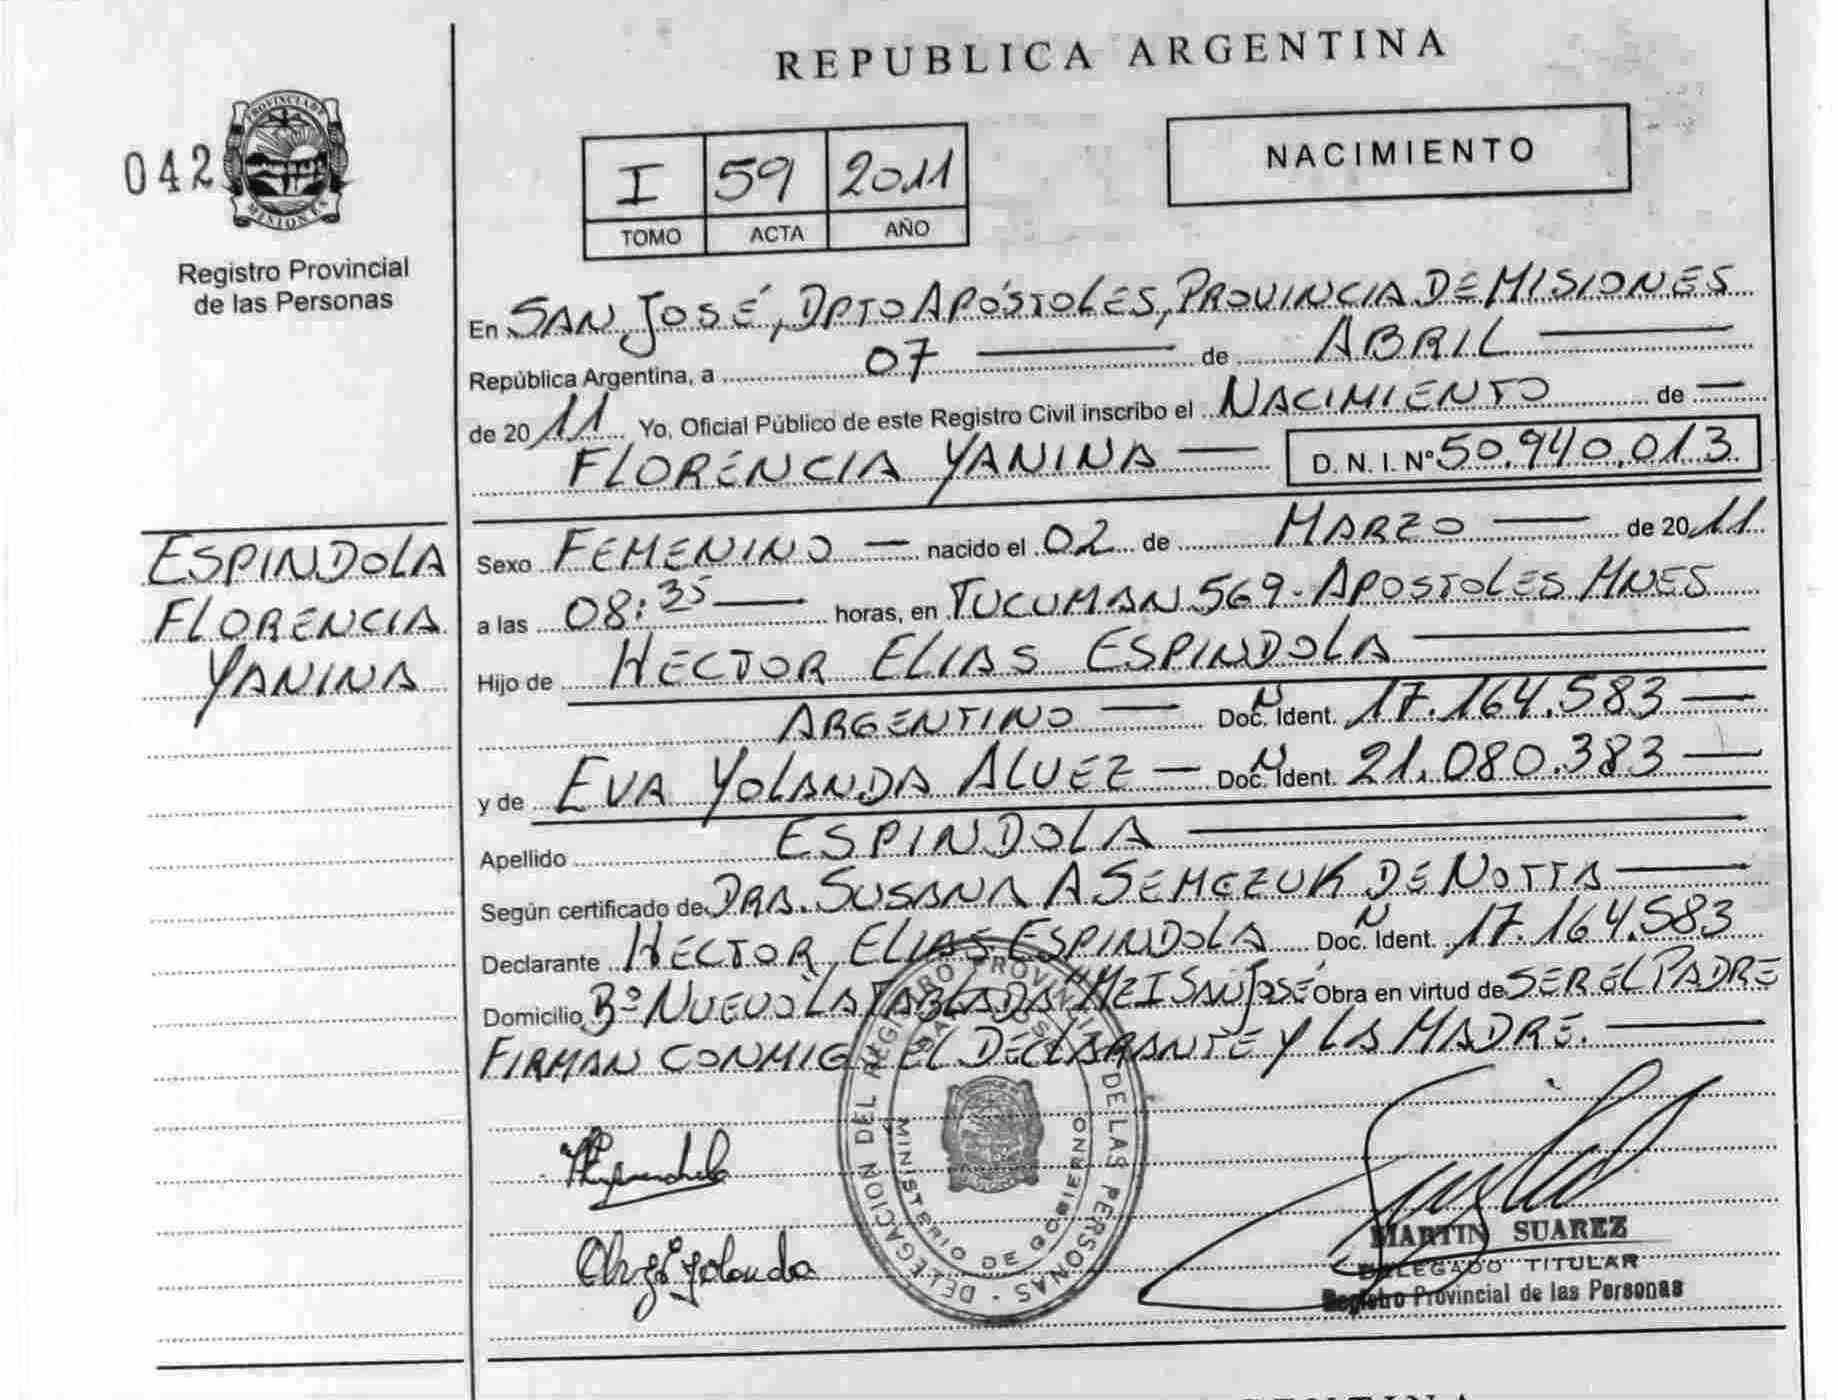 REPUBLICA ARGENTINA
042
PROVINCIA DE
MISIONES
Registro Provincial
de las Personas
I 59 2011
TOMO ACTA AÑO
NACIMIENTO
En SAN JOSÉ, DPTO APÓSTOLES, PROVINCIA DE MISIONES
República Argentina, a 07 de ABRIL
de 2011 Yo, Oficial Público de este Registro Civil inscribo el NACIMIENTO de
FLORENCIA YANINA D. N. I. Nº 50.940.013
ESPINDOLA
FLORENCIA
YANINA
Sexo FEMENINO nacido el 02 de MARZO de 2011
a las 08:35 horas, en TUCUMAN 569 - APOSTOLES MNES
Hijo de HECTOR ELIAS ESPINDOLA
ARGENTINO Doc. Ident. 17.164.583
y de EVA YOLANDA ALVEZ Doc. Ident. 21.080.383
Apellido ESPINDOLA
Según certificado de DRA. SUSANA A SEMCZUK DE NOTTA
Declarante HECTOR ELIAS ESPINDOLA Doc. Ident. 17.164.583
Domicilio Bº NUEVO "LA TABLADA" MZ I SAN JOSÉ Obra en virtud de SER EL PADRE
FIRMAN CONMIGO EL DECLARANTE Y LA MADRE.
DELEGACION DEL REGISTRO PROVINCIAL DE LAS PERSONAS
SAN JOSE
MINISTERIO DE GOBIERNO
Yolanda
MARTIN SUAREZ
DELEGADO TITULAR
Registro Provincial de las Personas